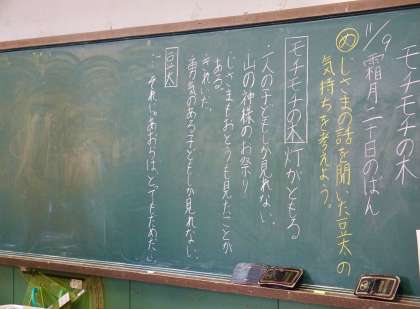 モチモチの木
11/9 霜月二十日のばん
め じさまの話を聞いた豆太の
気持ちを考えよう。
モチモチの木 灯がともる
・一人の子どもしか見れない。
・山の神様のお祭り
・じさまもおとうも見たことが
ある。
・きれいだ。
・勇気のある子どもしか見れない。
豆太
「…それじゃあおらは、とてもだめだ…」